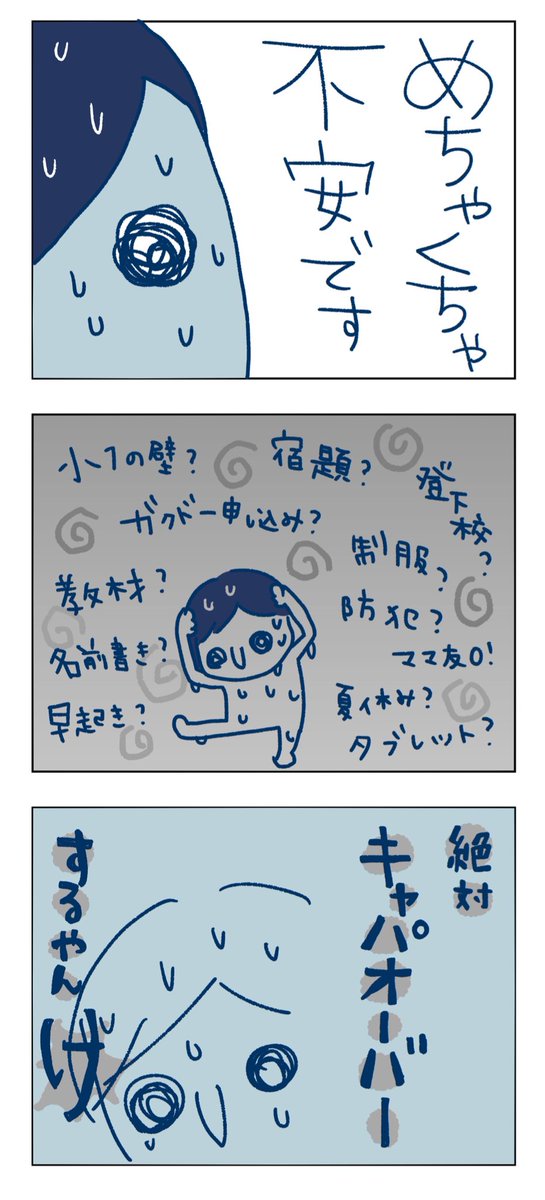 めちゃくちゃ
不安です
小1の壁?
宿題?
登下校?
ガクドー申し込み?
制服?
教材?
防犯?
名前書き?
ママ友0!
早起き?
夏休み?
タブレット?
絶対
キャパオーバー
するやんけ